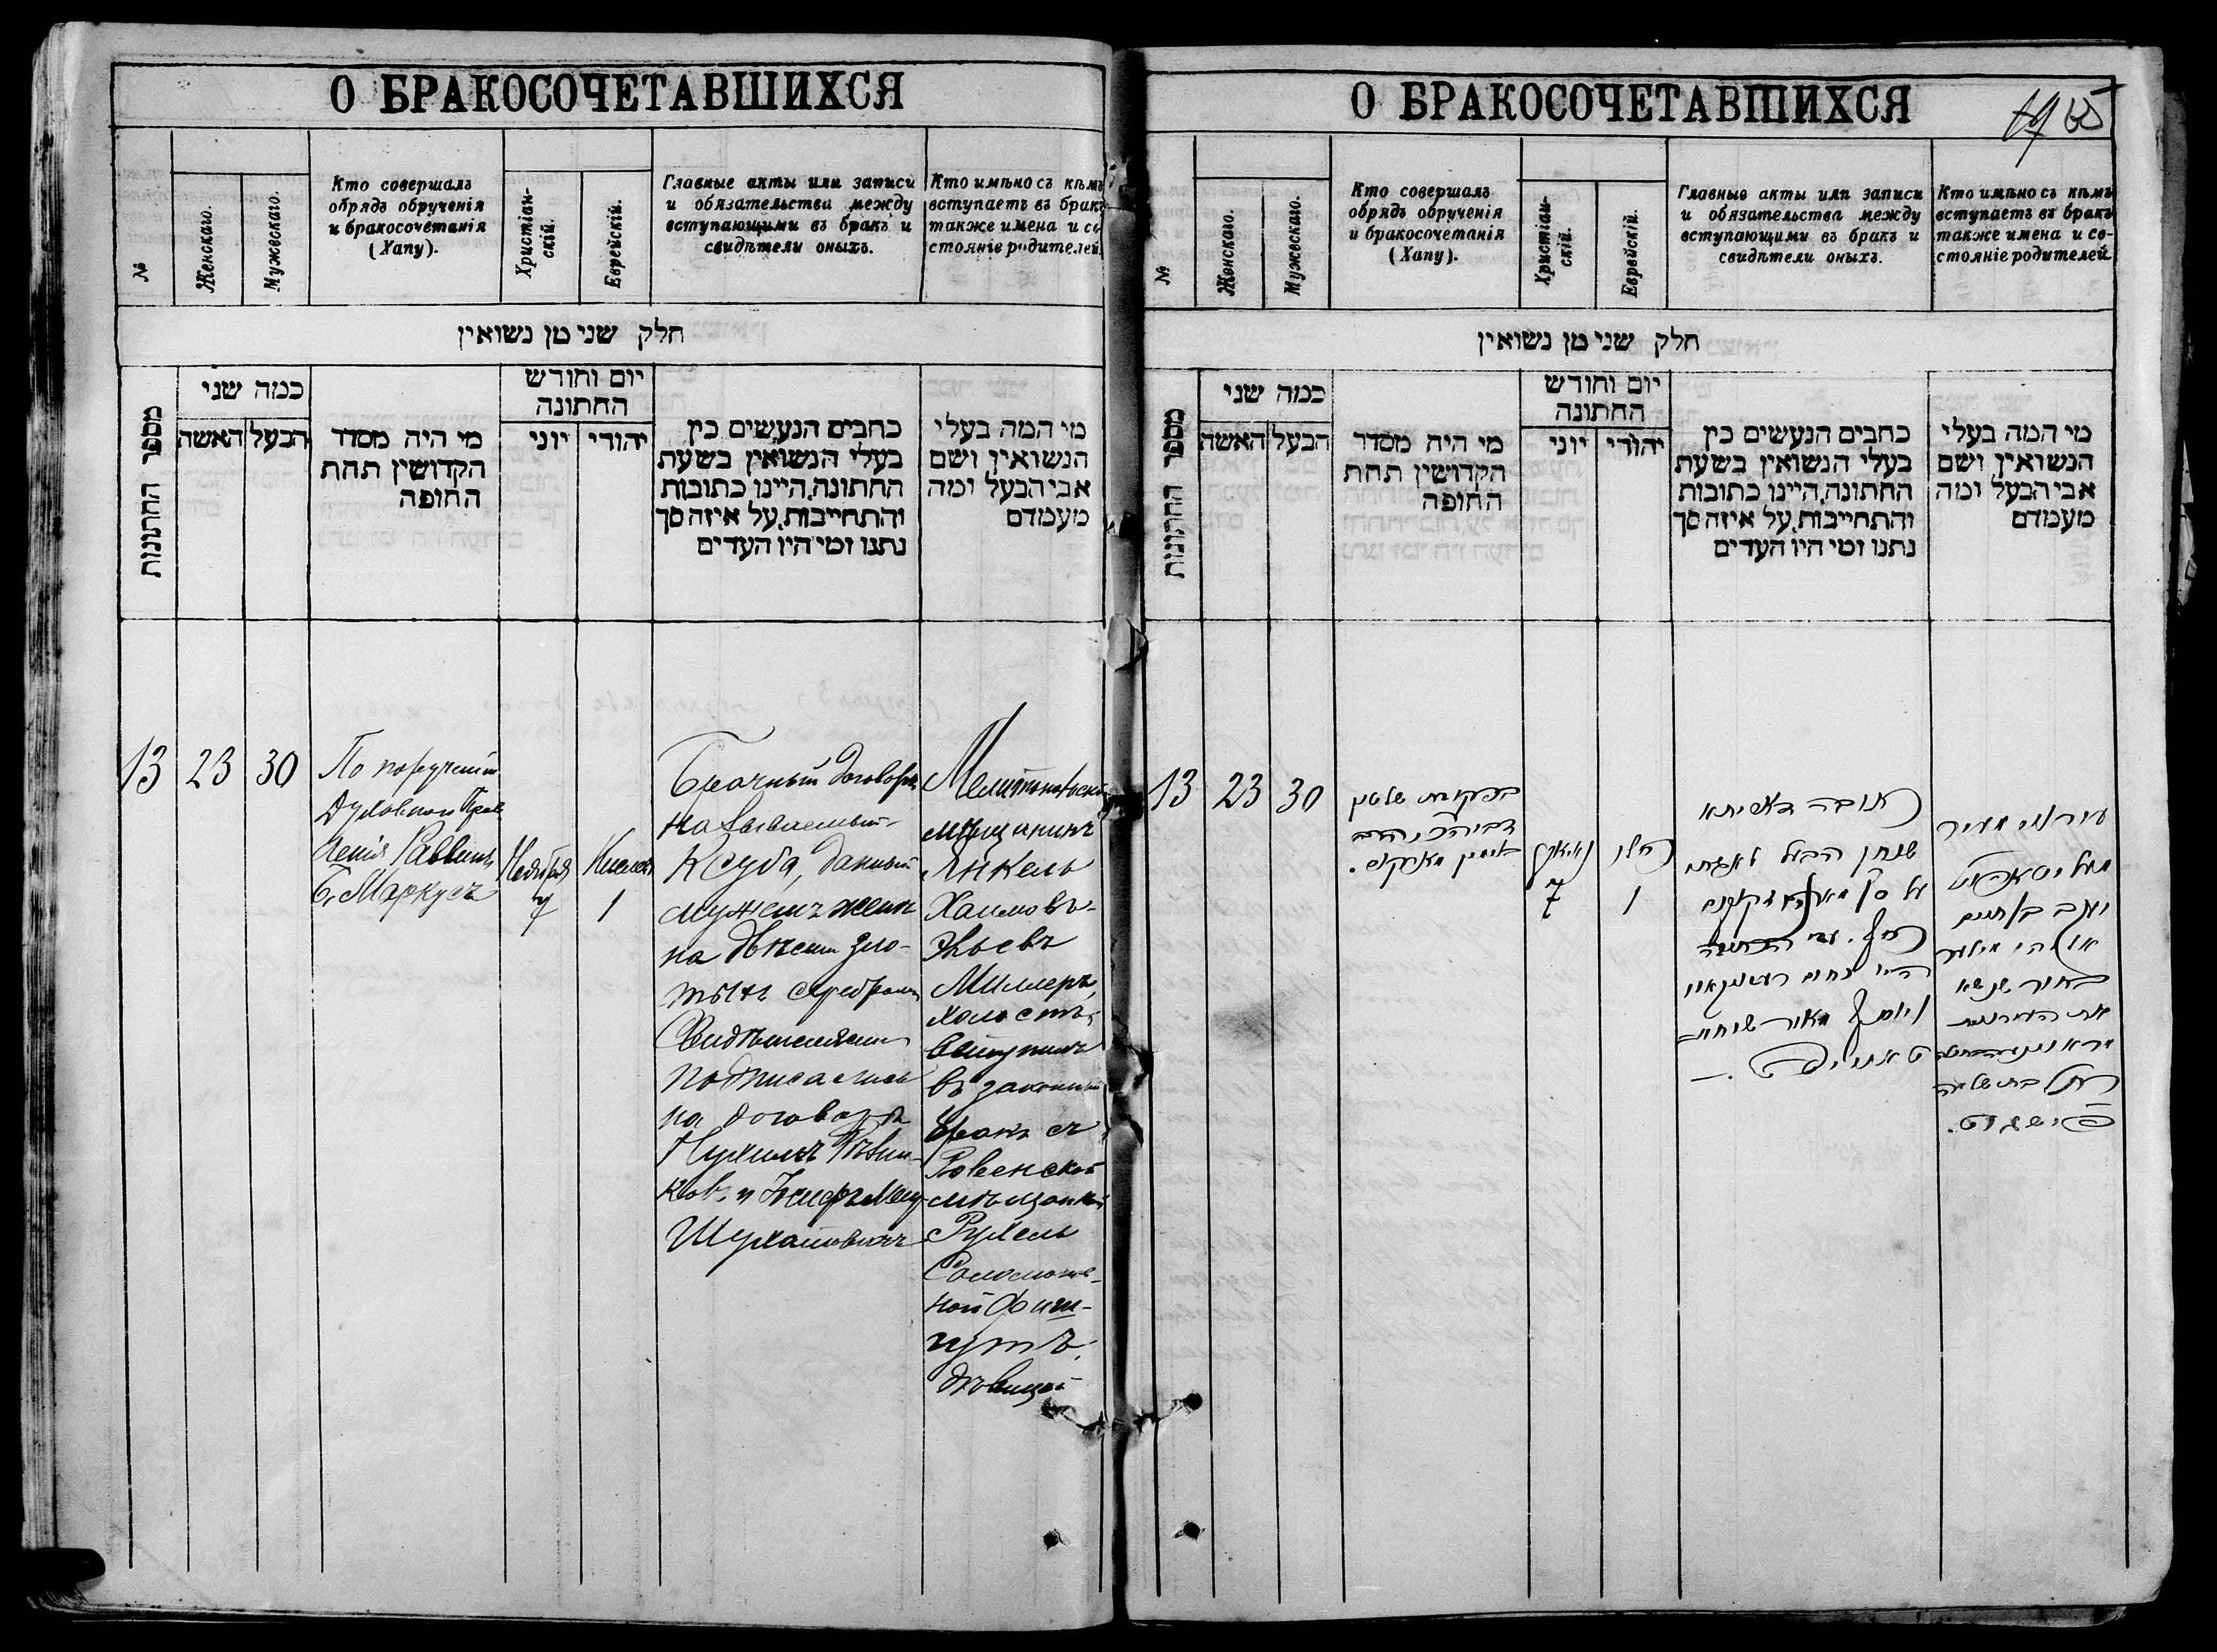 О БРАКОСОЧЕТАВШИХСЯ
№
Женскаго.
Мужескаго.
Кто совершалъ
обрядъ обрученія
и бракосочетанія
(Хапу).
Христіан-
скій.
Еврейскій.
Главные акты или записи
и обязательства между
вступающими въ бракъ и
свидѣтели оныхъ.
Кто имѣно съ кѣмъ
вступаетъ въ бракъ
также имена и со-
стояніе родителей.
חלק שני מן נשואין
מספר החתונות
כמה שני
האשה
הבעל
מי היה מסדר
הקדושין תחת
החופה
יום וחודש
החתונה
יוני
יהודי
כתבים הנעשים בין
בעלי הנשואין בשעת
החתונה, היינו כתובות
והתחייבות, על איזה סך
נתנו ומי היו העדים
מי המה בעלי
הנשואין ושם
אבי הבעל ומה
מעמדם
13
23
30
По порученію
Духовнаго Прав
Раввинъ
Б. Маркусъ
Ноября
7
Кислевъ
1
Брачный договоръ
называемый
Ксуба, данный
мужемъ женѣ
на двѣсти зло-
тыхъ серебромъ
Свидѣтелями
подписались
на договорѣ
и
Шухатовичъ
мѣщанинъ
Янкель
Хаимовъ-
Зельевъ
Миллеръ,
холостъ,
вступилъ
въ законный
бракъ съ
Ровенской
мѣщанкой
Рухель
Соломоно-
ной Фиш-
гутъ,
дѣвицей
О БРАКОСОЧЕТАВШИХСЯ
65
№
Женскаго.
Мужескаго.
Кто совершалъ
обрядъ обрученія
и бракосочетанія
(Хапу).
Христіан-
скій.
Еврейскій.
Главные акты или записи
и обязательства между
вступающими въ бракъ и
свидѣтели оныхъ.
Кто имѣно съ кѣмъ
вступаетъ въ бракъ
также имена и со-
стояніе родителей.
חלק שני מן נשואין
מספר החתונות
כמה שני
האשה
הבעל
מי היה מסדר
הקדושין תחת
החופה
יום וחודש
החתונה
יוני
יהודי
כתבים הנעשים בין
בעלי הנשואין בשעת
החתונה, היינו כתובות
והתחייבות, על איזה סך
נתנו ומי היו העדים
מי המה בעלי
הנשואין ושם
אבי הבעל ומה
מעמדם
13
23
30
7
כסלו
1
כתובה
שנתן הבעל לאשתו
על סך
כסף. עדי הכתובה
היו נחום
עירוני מעיר
יעקב בן חיים
מילער
בחור שנשא
את העירונית
רחל בת שלמה
פישגוט.